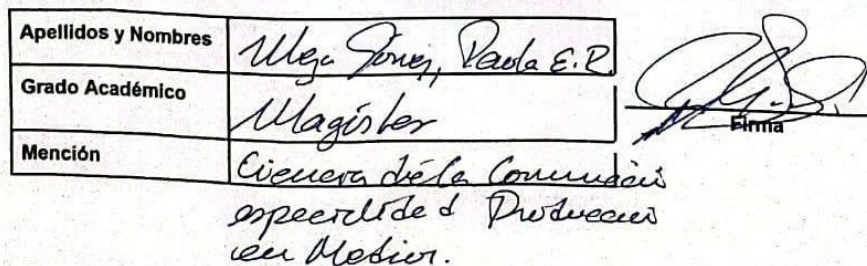 Apellidos y Nombres Mega Gómez, Paola E.R.
Grado Académico Magíster
Mención Ciencia de la Comunicación
especialidad Producción
en Medios.
Firma